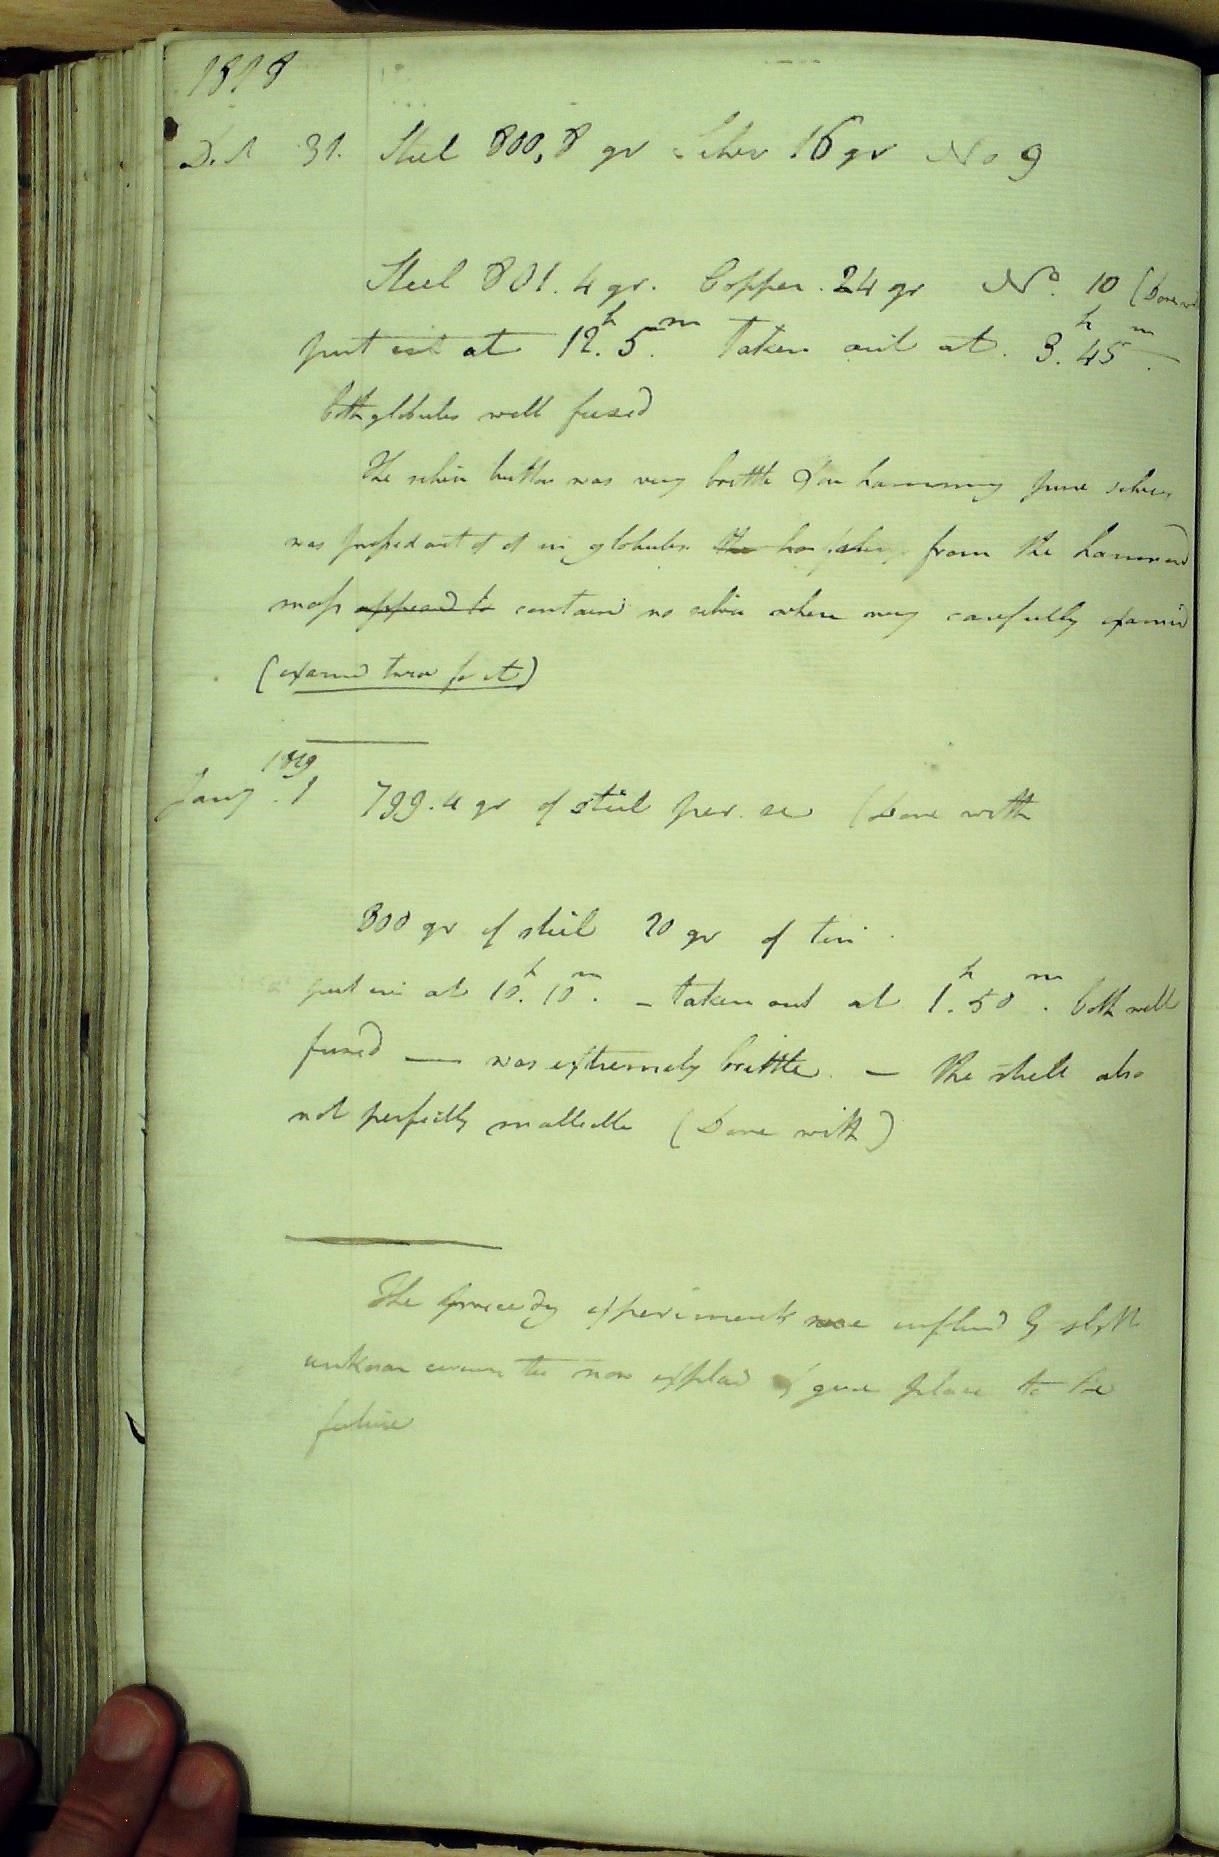 1818
Dec 31. Steel 800,8 gr Silver 16 gr No 9
Steel 801.4 gr. Copper. 24 gr No. 10 (Done
put in at 12h. 5m. Taken out at. 3h. 45m.
both globules well fused
The silver button was very brittle & on hammering pure silver
was pressed out of it in globules the from the hammered
mass appeared to contain no silver when very carefully
(
1819
Jany. 1 799.4 gr of steel per se (Done with
800 gr of steel 20 gr of tin
put in at 10h. 10m. - taken out at 1h. 50m. both well
fused — was extremely brittle. — the steel also
not perfectly malleable (Done with)
The preceding experiments were by slight
unknown now & give place to the
future